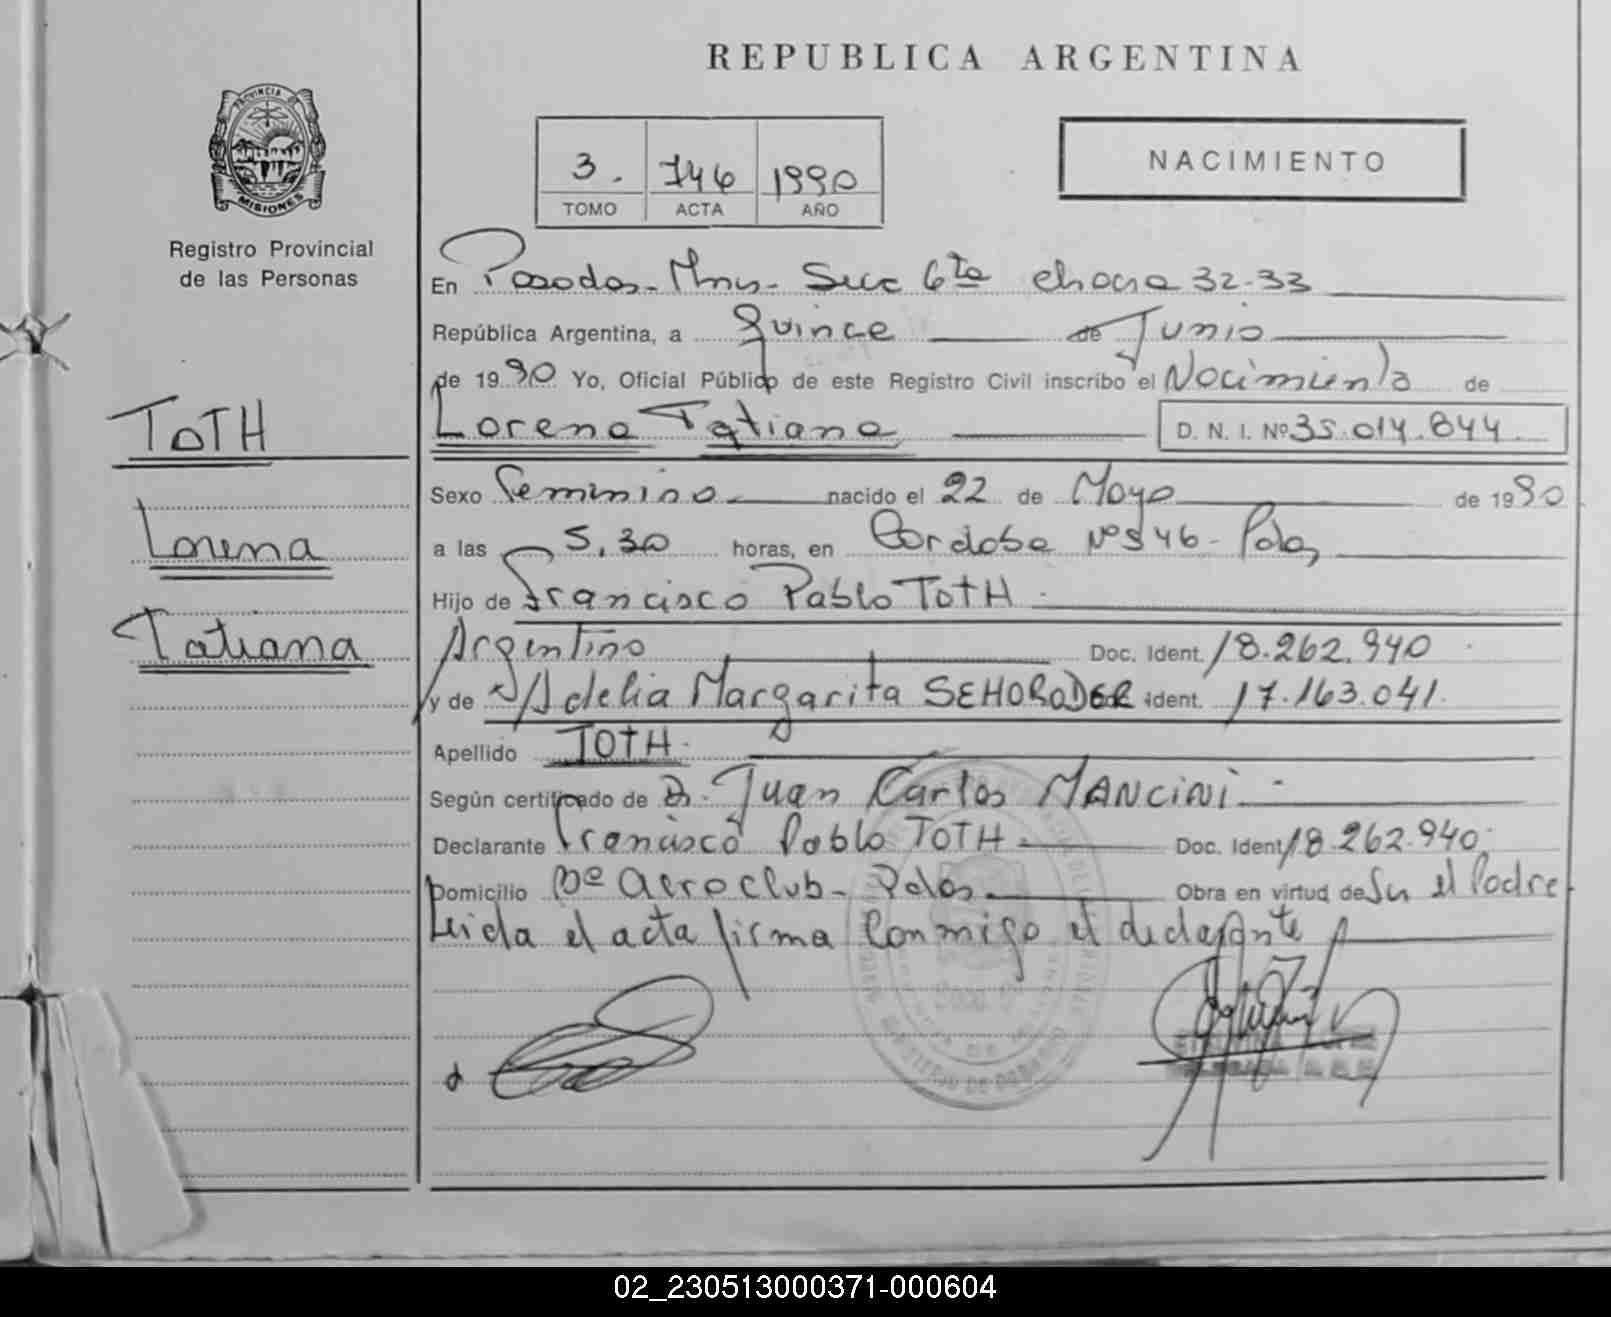 PROVINCIA DE
MISIONES
Registro Provincial
de las Personas
TOTH
Lorena
Tatiana
REPUBLICA ARGENTINA
3. 746 1990
TOMO ACTA AÑO
NACIMIENTO
En Posadas - Mnes - Secc 6ta chacra 32-33
República Argentina, a Quince de Junio
de 1990 Yo, Oficial Público de este Registro Civil inscribo el Nacimiento de
Lorena Tatiana D. N. I. Nº 35.014.844
Sexo Femenino nacido el 22 de Mayo de 1990
a las 5,30 horas, en Cordoba Nº 546 - Pdas,
Hijo de Francisco Pablo TOTH.
Argentino Doc. Ident. 18.262.940
y de Adelia Margarita SEHORODER ident. 17.163.041.
Apellido TOTH.
Según certificado de Dr. Juan Carlos MANCINI -
Declarante Francisco Pablo TOTH - Doc. Ident. 18.262.940.
Domicilio Bº aeroclub - Pdas. Obra en virtud de Ser el Padre
Leida el acta firma conmigo el declarante
02_230513000371-000604